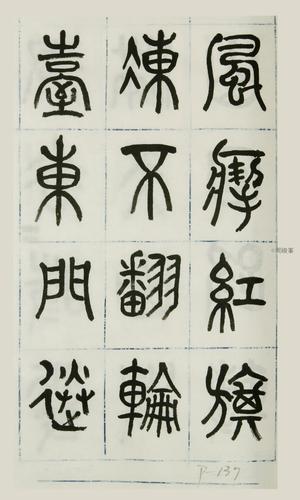 風掣紅旗
凍不翻輪
臺東門送
P-137